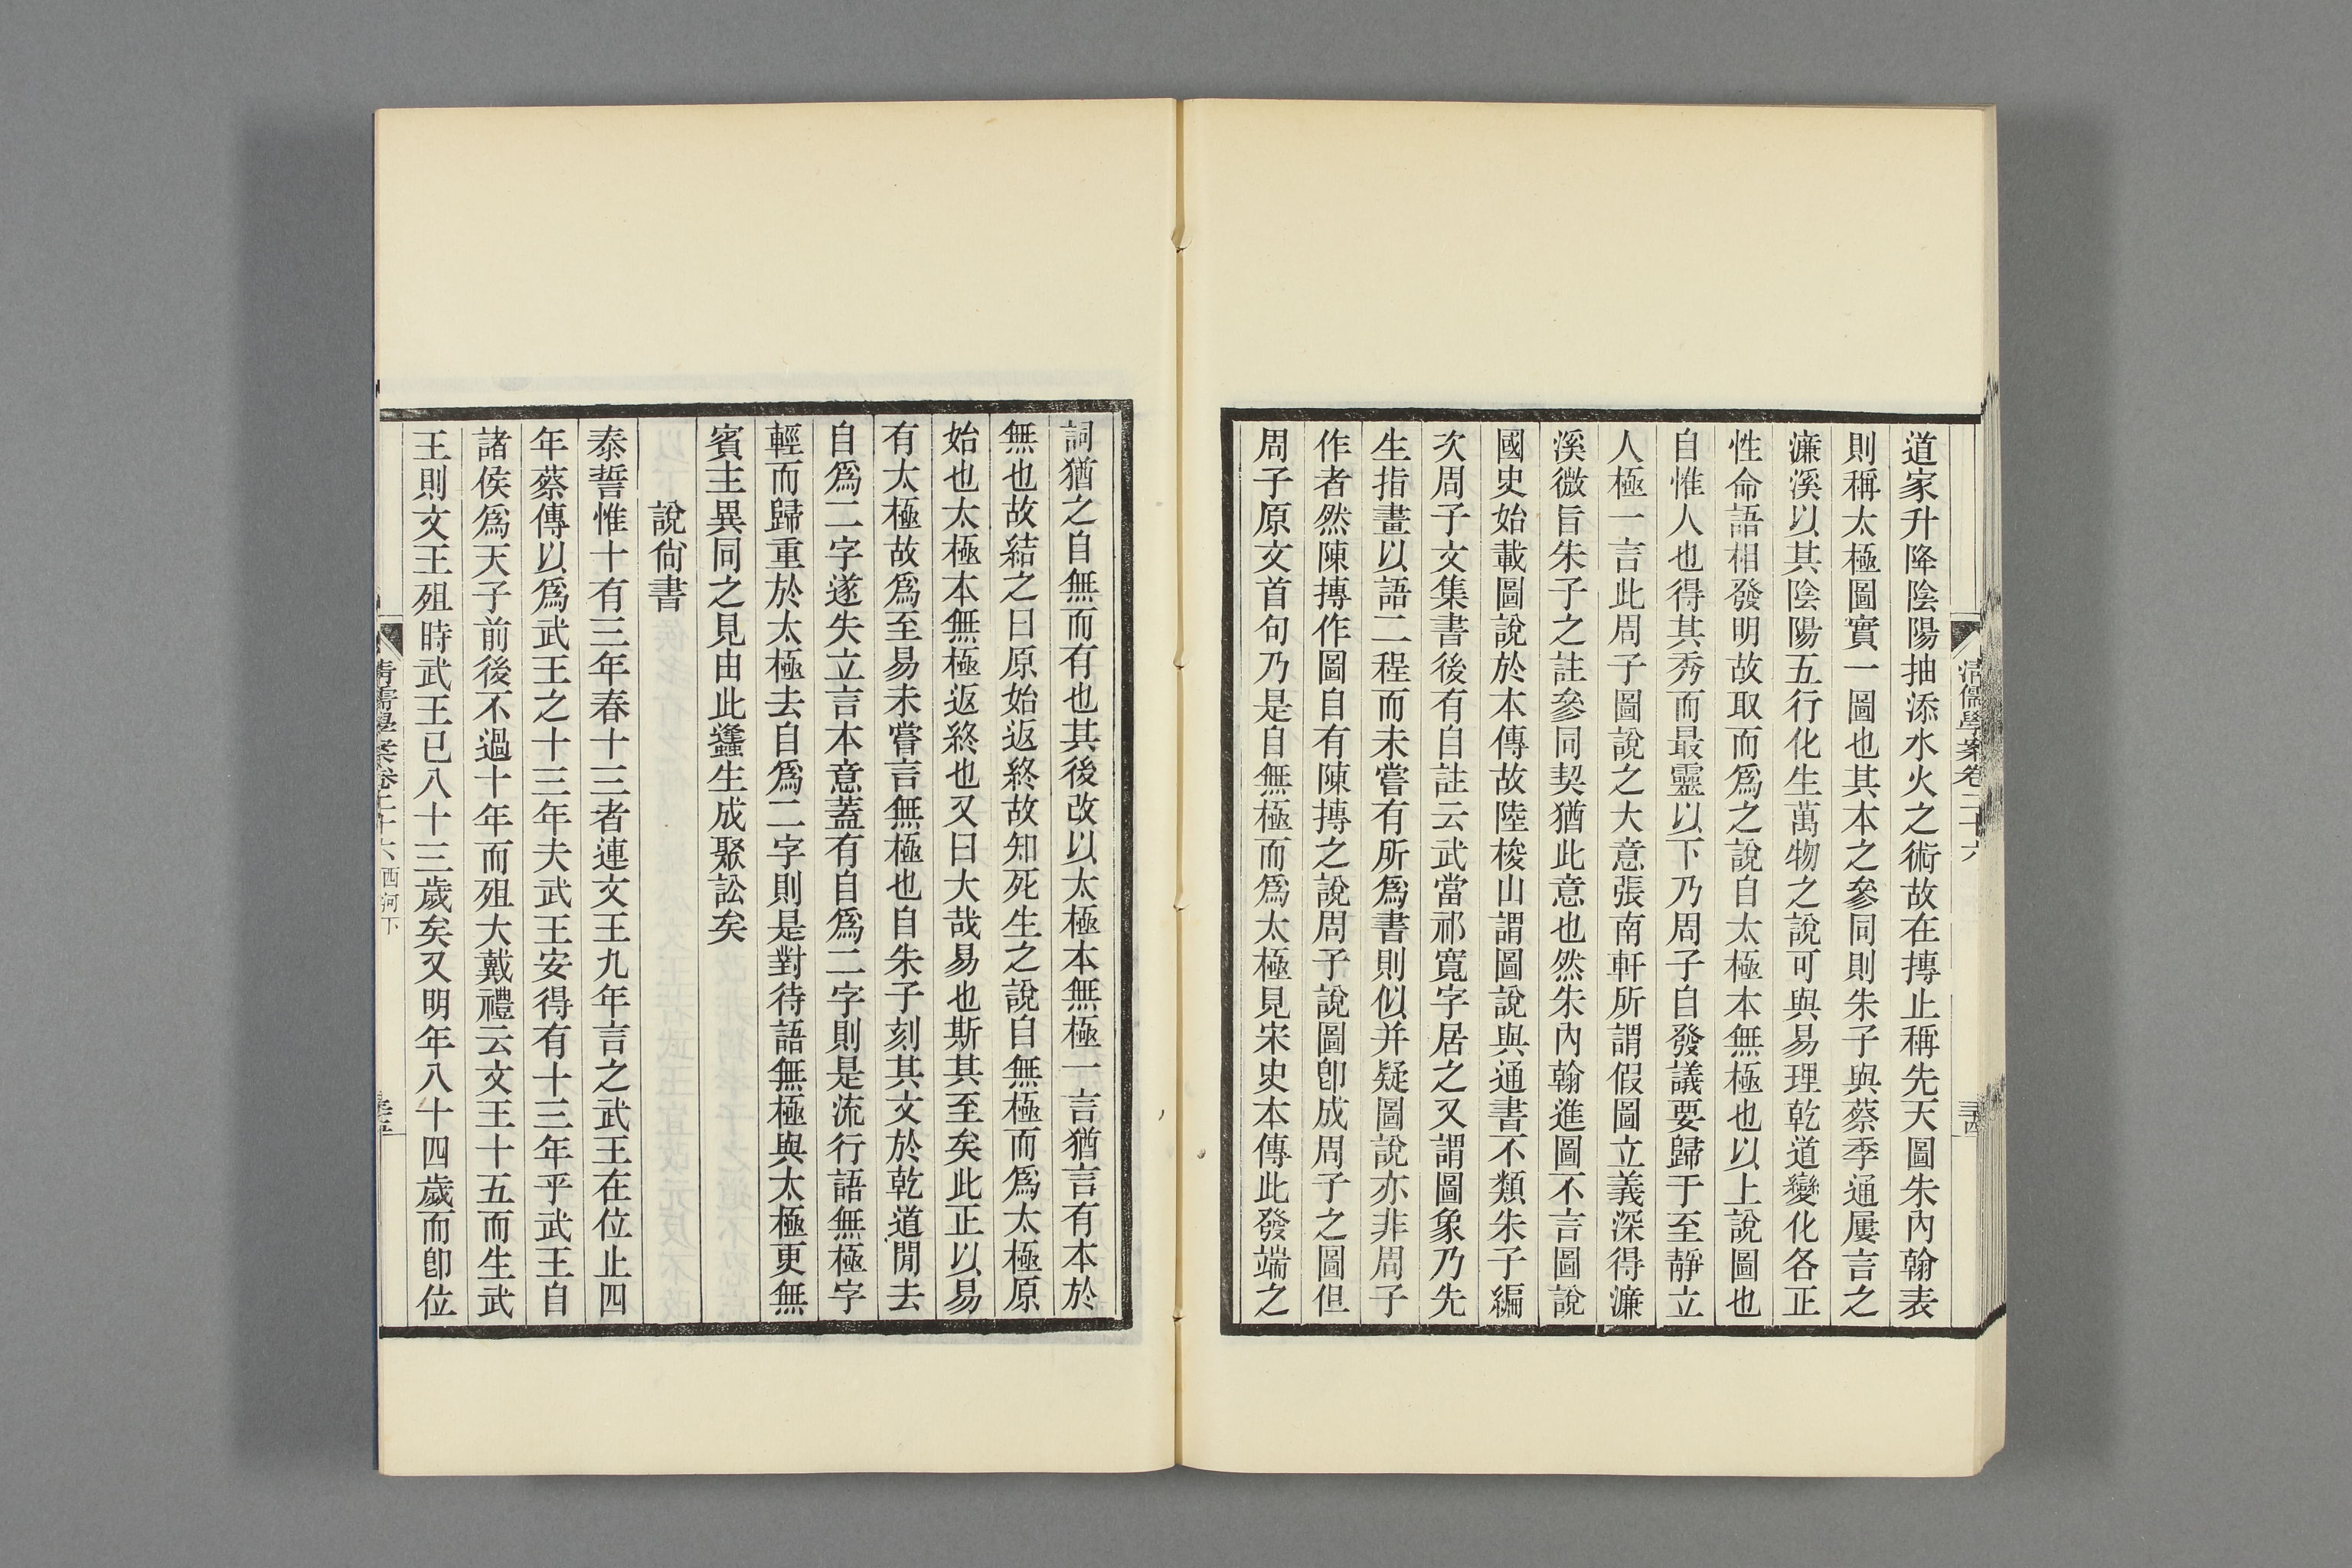 清儒學案卷二十六
三四
道家升降陰陽抽添水火之術故在摶止稱先天圖朱內翰表
則稱太極圖實一圖也其本之參同則朱子與蔡季通屢言之
濂溪以其陰陽五行化生萬物之說可與易理乾道變化各正
性命語相發明故取而爲之說自太極本無極也以上說圖也
自惟人也得其秀而最靈以下乃周子自發議要歸于至靜立
人極一言此周子圖說之大意張南軒所謂假圖立義深得濂
溪微旨朱子之註參同契猶此意也然朱內翰進圖不言圖說
國史始載圖說於本傳故陸梭山謂圖說與通書不類朱子編
次周子文集書後有自註云武當祁寬字居之又謂圖象乃先
生指畫以語二程而未嘗有所爲書則似并疑圖說亦非周子
作者然陳摶作圖自有陳摶之說周子說圖卽成周子之圖但
周子原文首句乃是自無極而爲太極見宋史本傳此發端之
詞猶之自無而有也其後改以太極本無極一言猶言有本於
無也故結之曰原始返終故知死生之說自無極而爲太極原
始也太極本無極返終也又曰大哉易也斯其至矣此正以易
有太極故爲至易未嘗言無極也自朱子刻其文於乾道閒去
自爲二字遂失立言本意蓋有自爲二字則是流行語無極字
輕而歸重於太極去自爲二字則是對待語無極與太極更無
賓主異同之見由此蠭生成聚訟矣
說尙書
泰誓惟十有三年春十三者連文王九年言之武王在位止四
年蔡傳以爲武王之十三年夫武王安得有十三年乎武王自
諸侯爲天子前後不過十年而殂大戴禮云文王十五而生武
王則文王殂時武王已八十三歲矣又明年八十四歲而卽位
清儒學案卷二十六 西河下